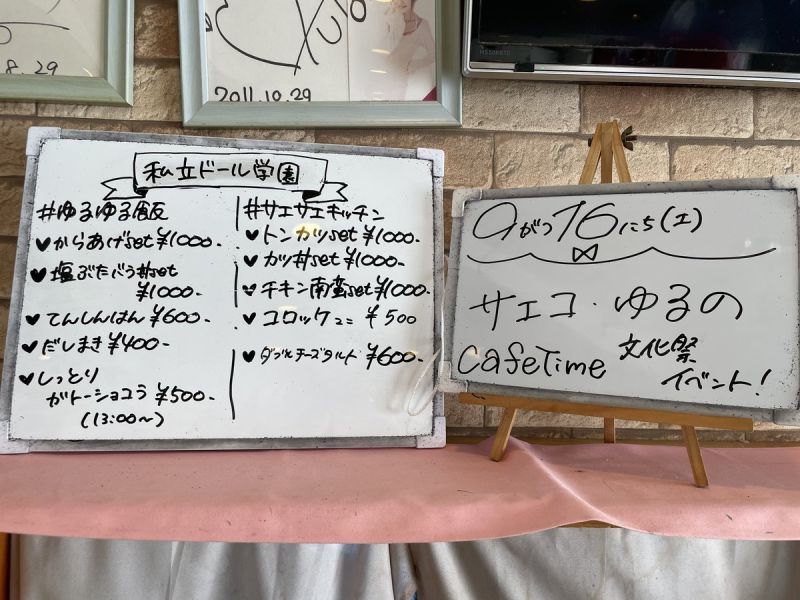 8.29
2011.10.29
私立ドール学園
#ゆるゆる飯
♥からあげset ¥1000-
♥塩ぶたばら丼set
¥1000-
♥てんしんはん ¥600-
♥だしまき ¥400-
♥しっとり
ガトーショコラ ¥500-
(13:00〜)
#サエサエキッチン
♥トンカツset ¥1000-
♥カツ丼set ¥1000-
♥チキン南蛮set ¥1000-
♥コロッケ2コ ¥500
♥ダブルチーズタルト ¥600-
9がつ16にち(土)
サエコ・ゆるの
CafeTime 文化祭
イベント!